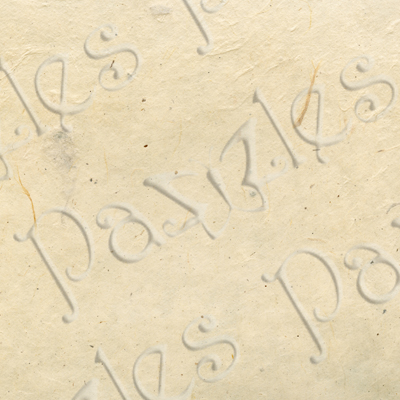 les p
pazzles
les pa